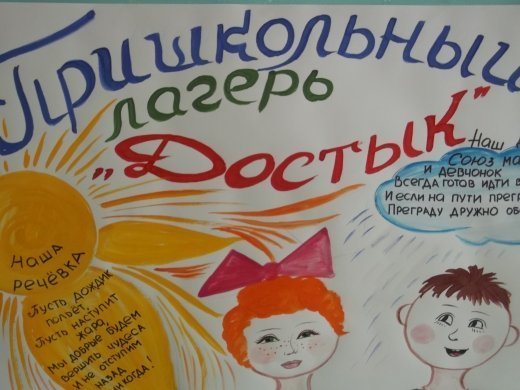 Пришкольный
лагерь
„Достык"
Наш
Союз
и девчонок
Всегда готов идти
И если на пути
Преграду дружно
Наша
речёвка
Пусть дождик
польёт,
Пусть наступит
жара,
Мы добрые будем
вершить чудеса
и не отступим
назад
никогда!